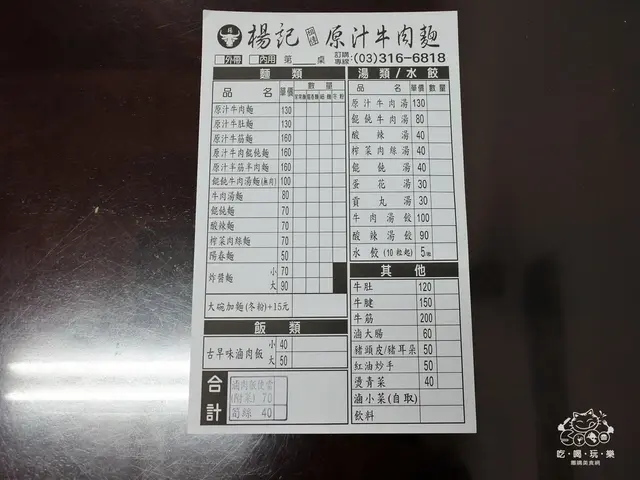 楊記 原汁牛肉麵
外帶 內用 第 桌 訂購專線:(03)316-6818
麵類
品名 單價 數量
原汁牛肉麵 130
原汁牛肚麵 130
原汁牛筋麵 160
原汁牛肉餛飩麵 160
原汁半筋半肉麵 160
餛飩牛肉湯麵(無肉) 100
牛肉湯麵 80
餛飩麵 70
酸辣麵 70
榨菜肉絲麵 70
陽春麵 50
炸醬麵 小 70
大 90
大碗加麵(冬粉)+15元
飯類
古早味滷肉飯 小 40
大 50
合計
滷肉飯便當
(附菜) 70
筍絲 40
湯類/水餃
品名 單價 數量
原汁牛肉湯 130
餛飩牛肉湯 80
酸辣湯 40
榨菜肉絲湯 40
餛飩湯 40
蛋花湯 30
貢丸湯 30
牛肉湯餃 100
酸辣湯餃 90
水餃(10粒起) 5/粒
其他
牛肚 120
牛腱 150
牛筋 200
滷大腸 60
豬頭皮/豬耳朵 50
紅油炒手 50
燙青菜 40
滷小菜(自取)
飲料
吃·喝·玩·樂